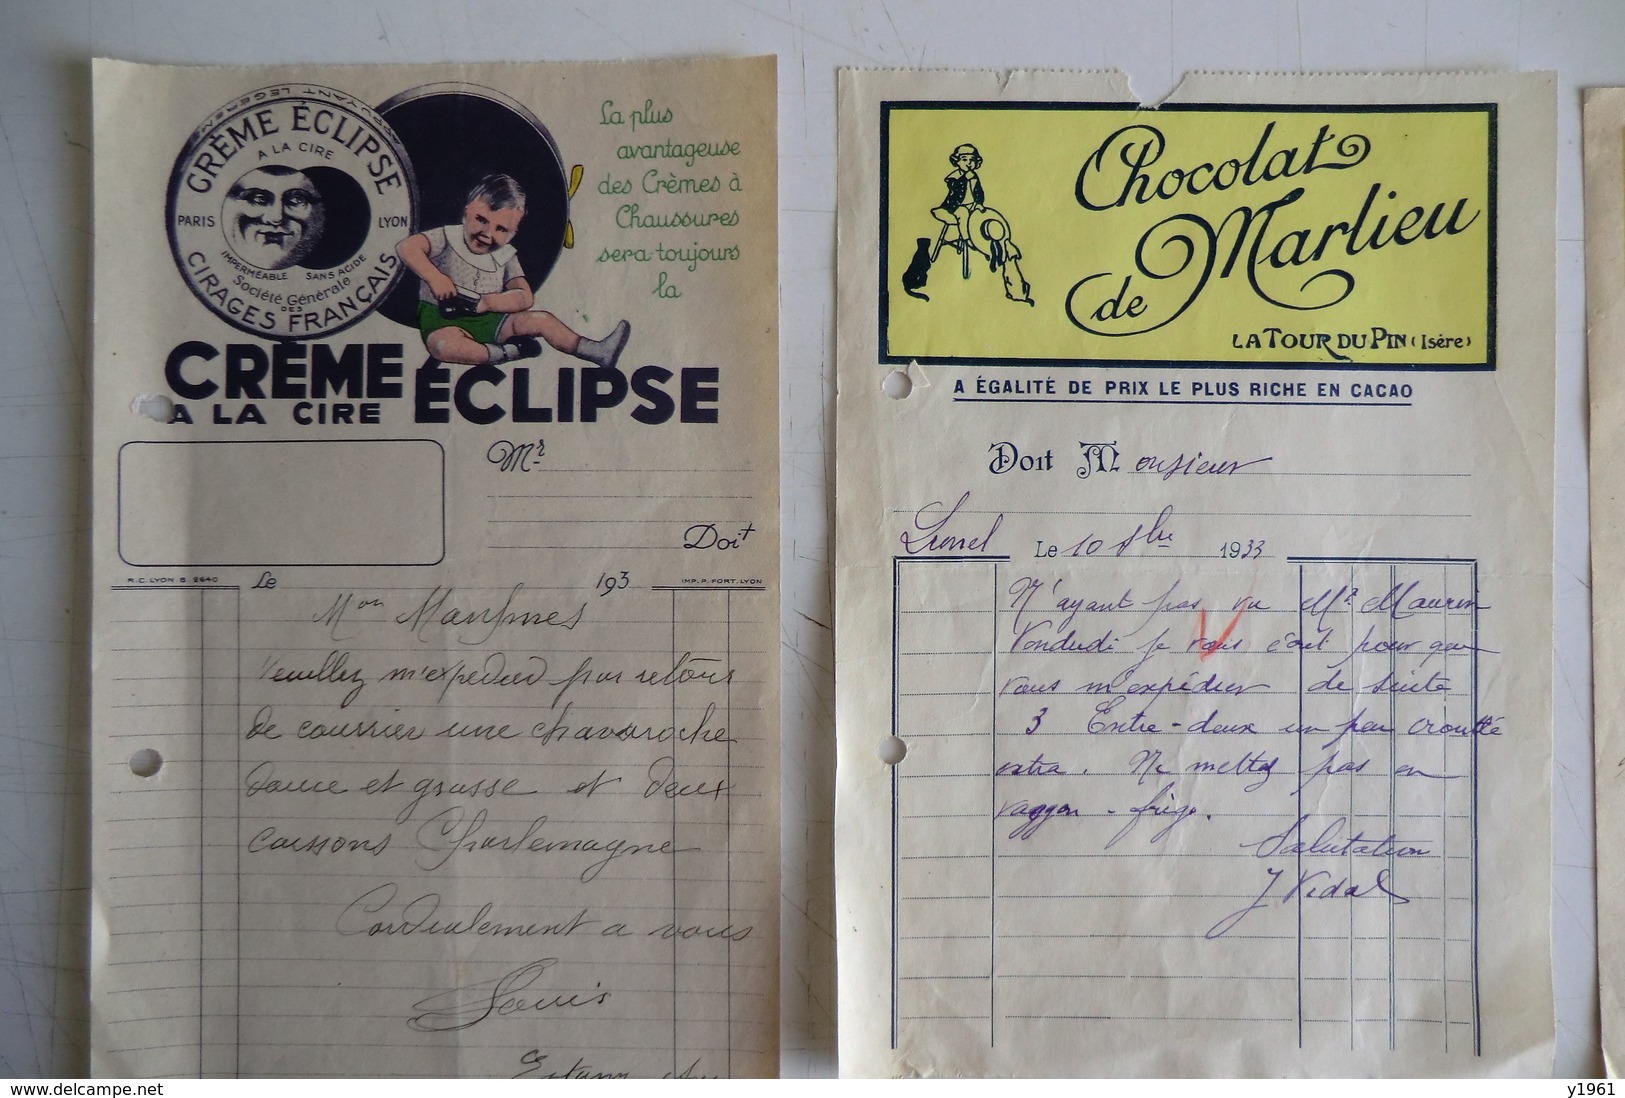 APPUYANT LÉGÈREM
CRÈME ÉCLIPSE
A LA CIRE
PARIS LYON
IMPERMÉABLE SANS ACIDE
Société Générale
DES
CIRAGES FRANÇAIS
La plus
avantageuse
des Crèmes à
Chaussures
sera toujours
la
CRÈME ÉCLIPSE
A LA CIRE
Mr
Doit
R.C. LYON B 2640
Le 193
IMP. P. FORT. LYON
Mon
Veuillez m'expédier par retour
de courrier une chavaroche
douce et grasse et deux
caissons Charlemagne
Cordialement a vous
Louis
Chocolat
de Marlieu
LA TOUR DU PIN (Isère)
A ÉGALITÉ DE PRIX LE PLUS RICHE EN CACAO
Doit Monsieur
Lunel Le 10 1933
N'ayant pas vu Mr Maurin
Vendredi je vous écrit pour que
vous m'expédier de suite
3 Entre-deux un peu croutté
extra. Ne mettez pas en
vaggon-frigo.
Salutation
J Vidal
www.delcampe.net
y1961